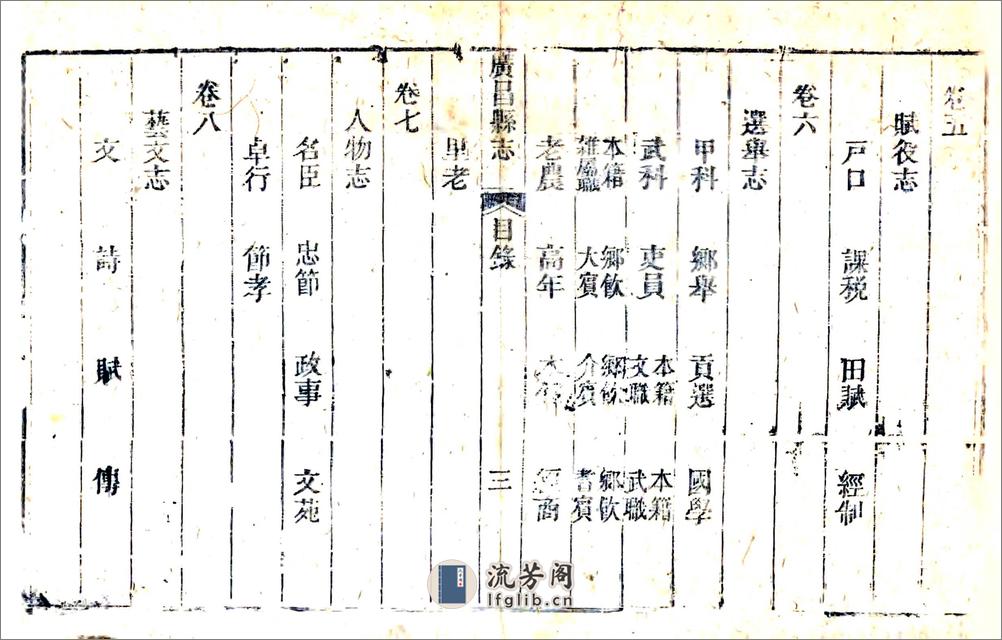 卷五
賦役志
戸口 課税 田賦 經制
卷六
選舉志
甲科 鄉舉 貢選 國學
武科 吏員 本籍文職 本籍武職
本籍雜職 鄉飲大賓 鄉飲介賓 鄉飲耆賓
老農 高年
廣昌縣志 目錄 三
里老
卷七
人物志
名臣 忠節 政事 文苑
卓行 節孝
卷八
藝文志
文 詩 賦 傳
流芳阁
lfglib.cn